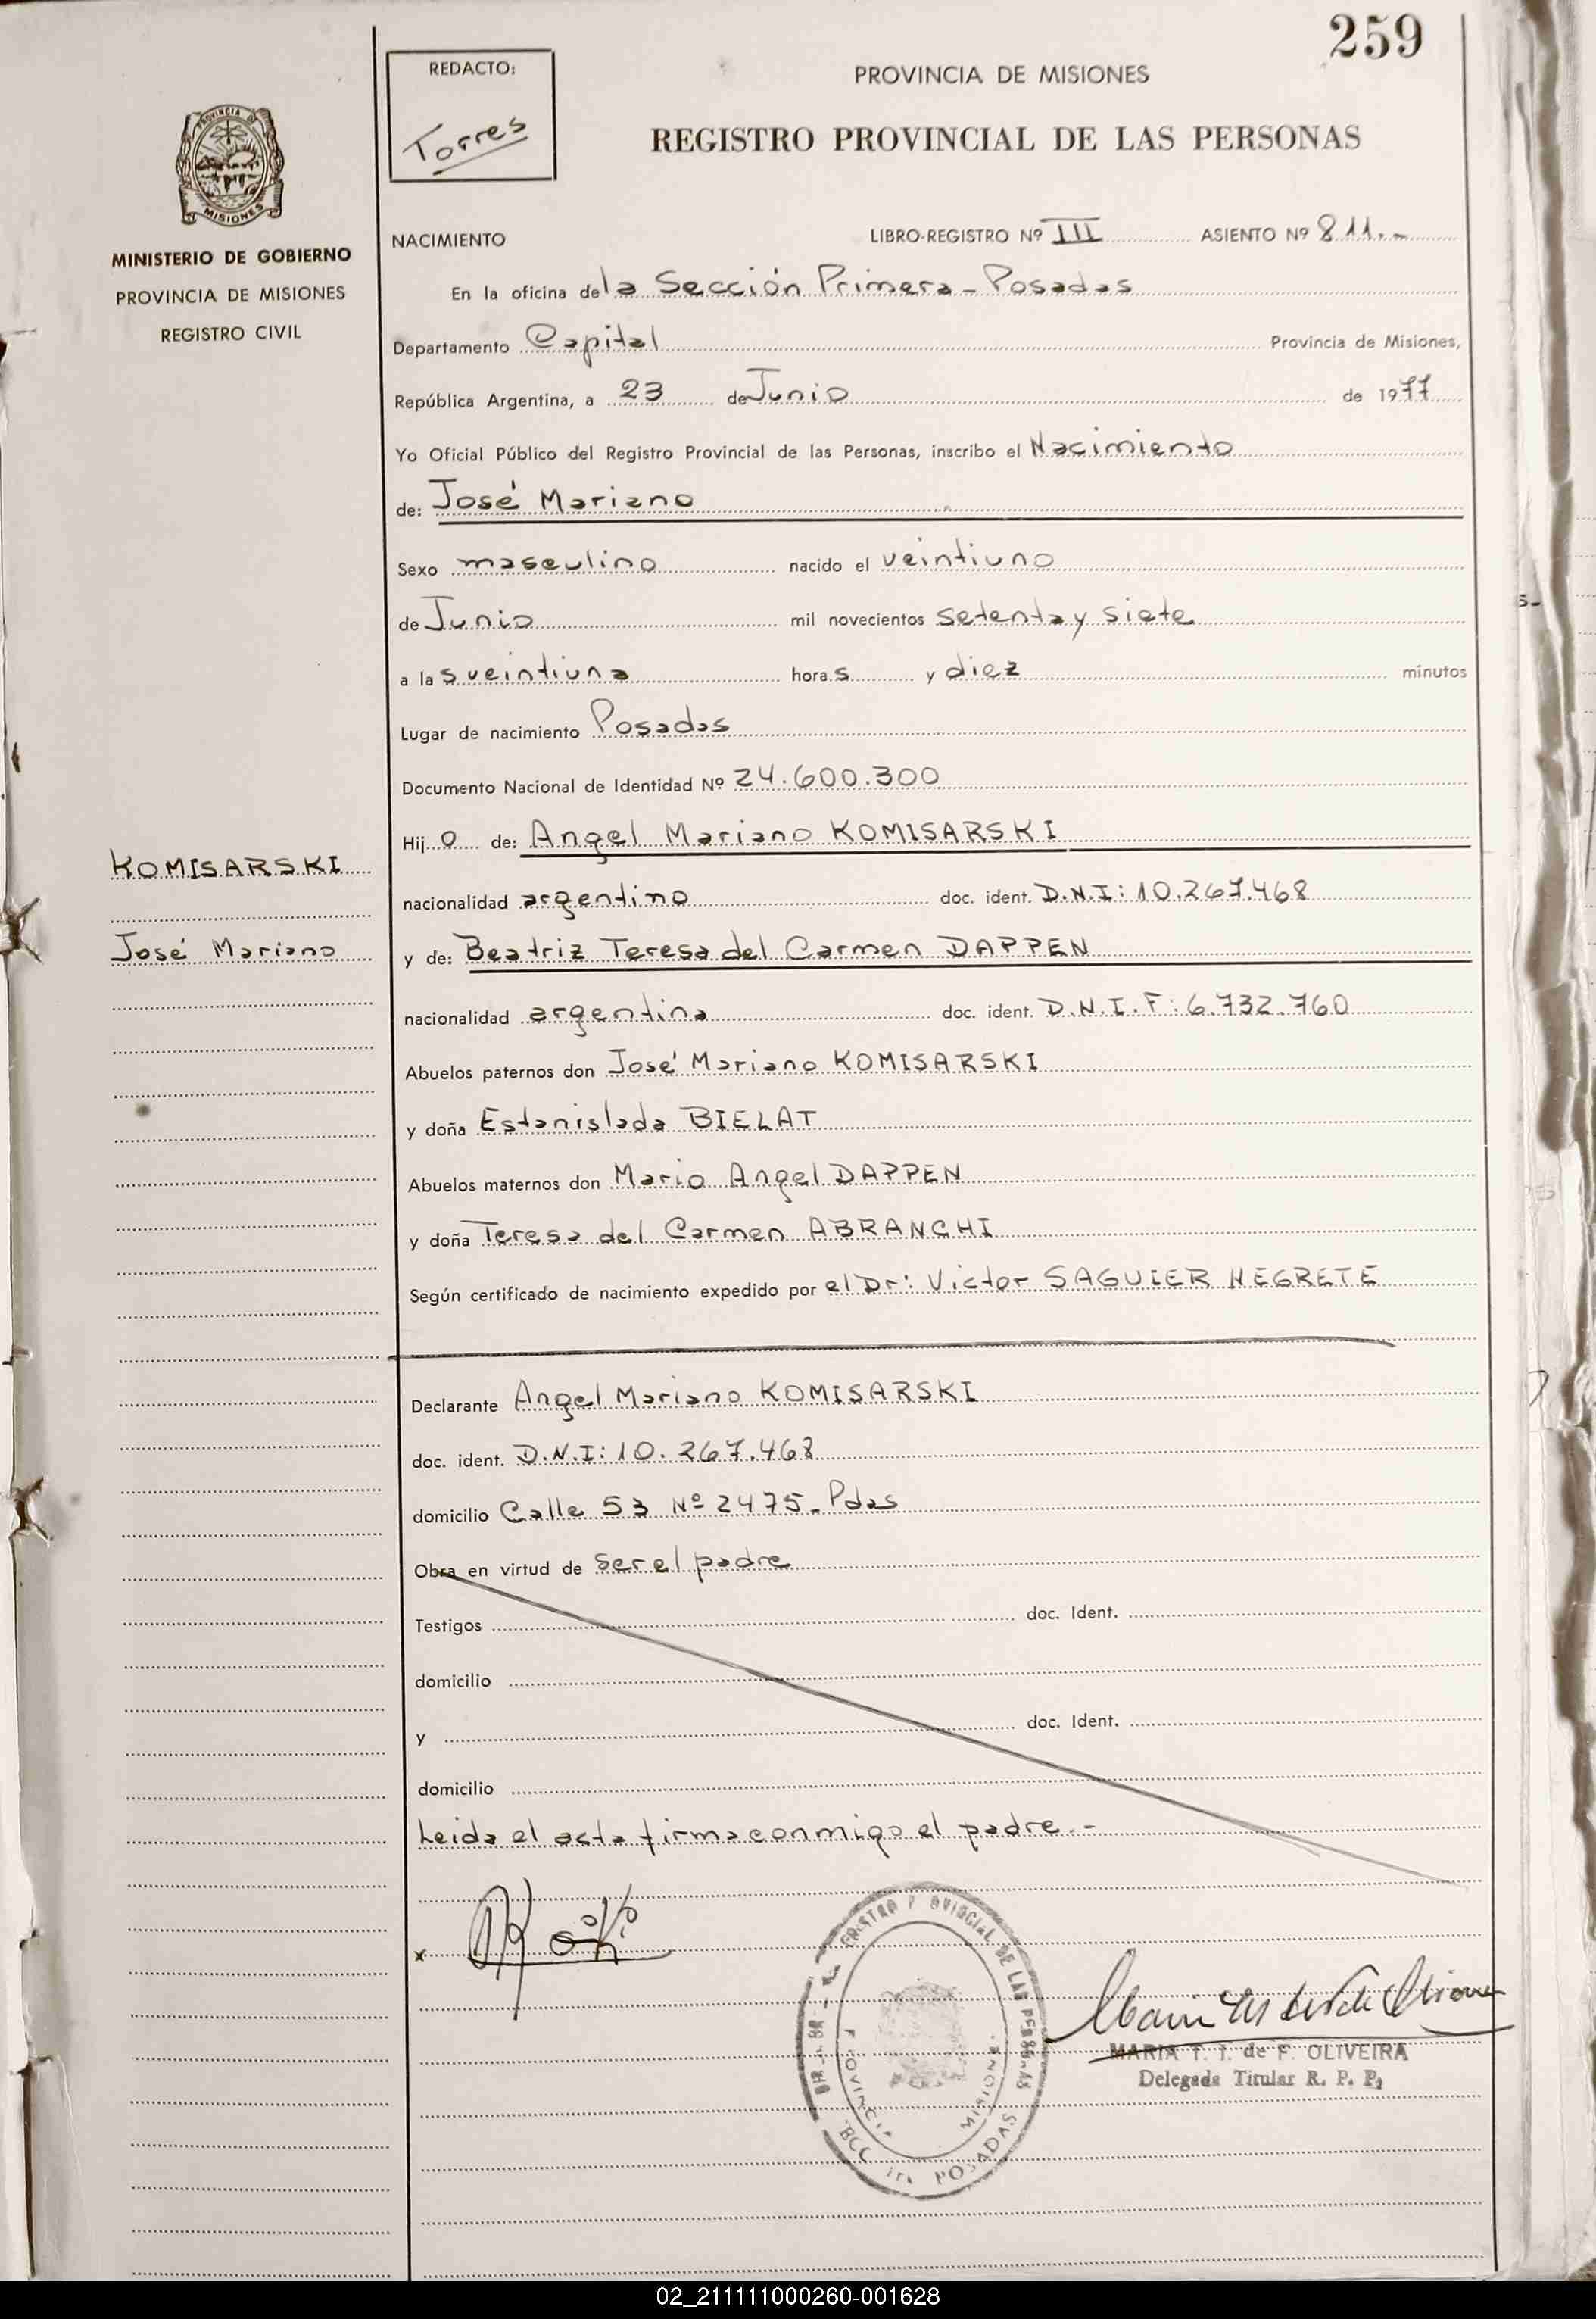 259
REDACTO:
Torres
PROVINCIA DE MISIONES
REGISTRO PROVINCIAL DE LAS PERSONAS
MISIONES
MINISTERIO DE GOBIERNO
PROVINCIA DE MISIONES
REGISTRO CIVIL
NACIMIENTO LIBRO-REGISTRO Nº III ASIENTO Nº 811.-
En la oficina de la Sección Primera - Posadas
Departamento Capital Provincia de Misiones,
República Argentina, a 23 de Junio de 1977
Yo Oficial Público del Registro Provincial de las Personas, inscribo el Nacimiento
de: José Mariano
Sexo masculino nacido el veintiuno
de Junio mil novecientos setenta y siete
a las veintiuna horas y diez minutos
Lugar de nacimiento Posadas
Documento Nacional de Identidad Nº 24.600.300
Hijo de: Angel Mariano KOMISARSKI
KOMISARSKI
nacionalidad argentino doc. ident. D.N.I: 10.267.468
José Mariano
y de: Beatriz Teresa del Carmen DAPPEN
nacionalidad argentina doc. ident. D.N.I.F: 6.732.760
Abuelos paternos don José Mariano KOMISARSKI
y doña Estanislada BIELAT
Abuelos maternos don Mario Angel DAPPEN
y doña Teresa del Carmen ABRANCHI
Según certificado de nacimiento expedido por el Dr: Victor SAGUIER NEGRETE
Declarante Angel Mariano KOMISARSKI
doc. ident. D.N.I: 10.267.468
domicilio Calle 53 Nº 2475 - Pdas
Obra en virtud de ser el padre
Testigos doc. Ident.
domicilio
y doc. Ident.
domicilio
Leida el acta firma conmigo el padre.-
x
DE LAS PERSONAS
POSADAS
MARIA T. I. de F. OLIVEIRA
Delegada Titular R. P. P.
02_211111000260-001628